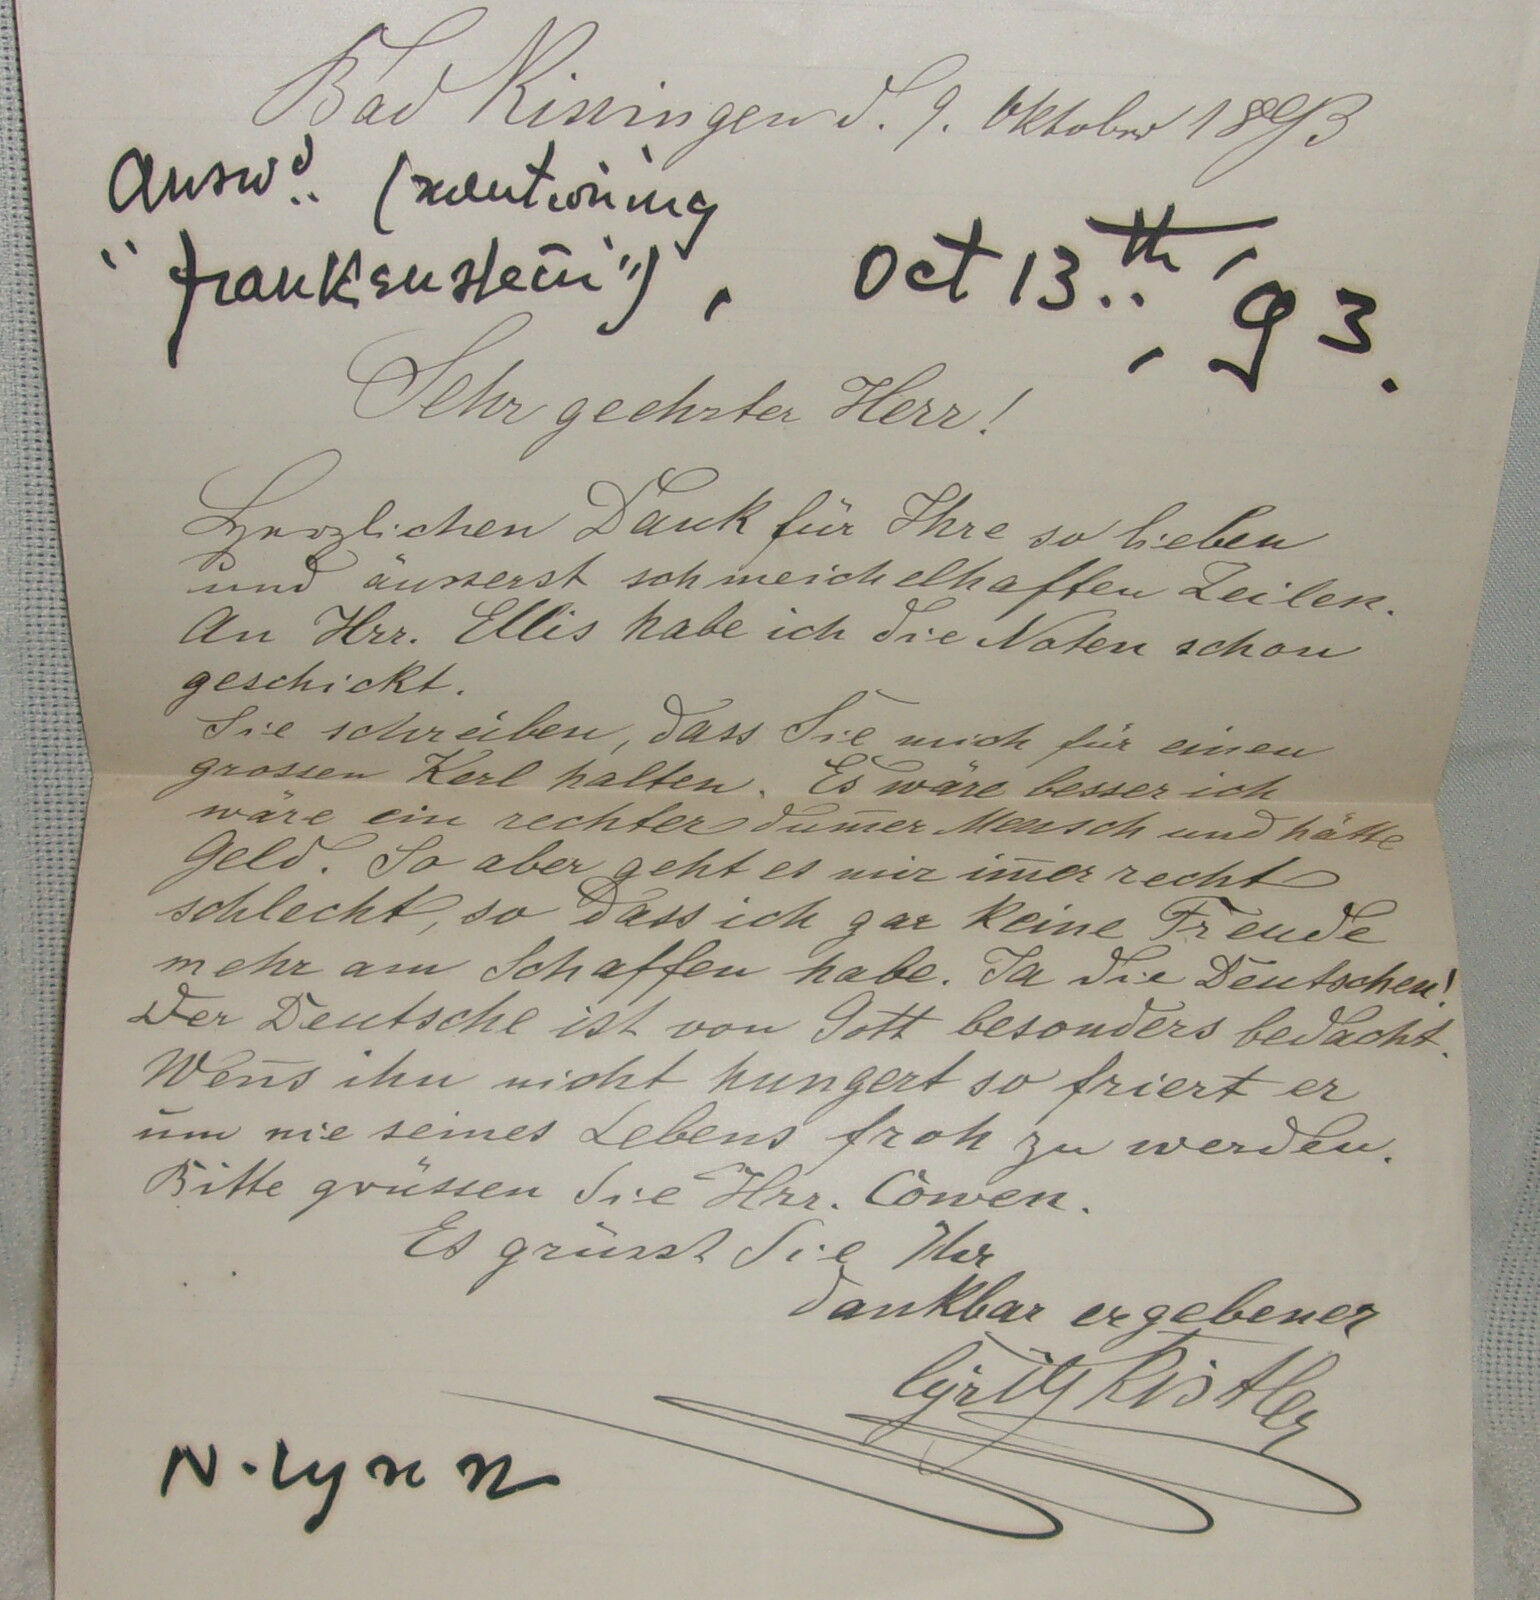 Bad Kissingen d. 9. Oktober 1893
Answd. (mentioning
"Frankenstein"), Oct 13th, '93.
Sehr geehrter Herr!
Herzlichen Dank für Ihre so lieben
und äusserst schmeichelhaften Zeilen.
An Hrr. Ellis habe ich die Noten schon
geschickt.
Sie schreiben, dass Sie mich für einen
grossen Kerl halten. Es wäre besser ich
wäre ein rechter dum̄er Mensch und hätte
Geld. So aber geht es mir im̄er recht
schlecht, so dass ich gar keine Freude
mehr am Schaffen habe. Ja die Deutschen!
Der Deutsche ist von Gott besonders bedacht.
Wen̄s ihn nicht hungert so friert er
um nie seines Lebens froh zu werden.
Bitte grüssen Sie Hrr. Cowen.
Es grüsst Sie Ihr
dankbar ergebener
Cyrill Kistler
N. Lynn